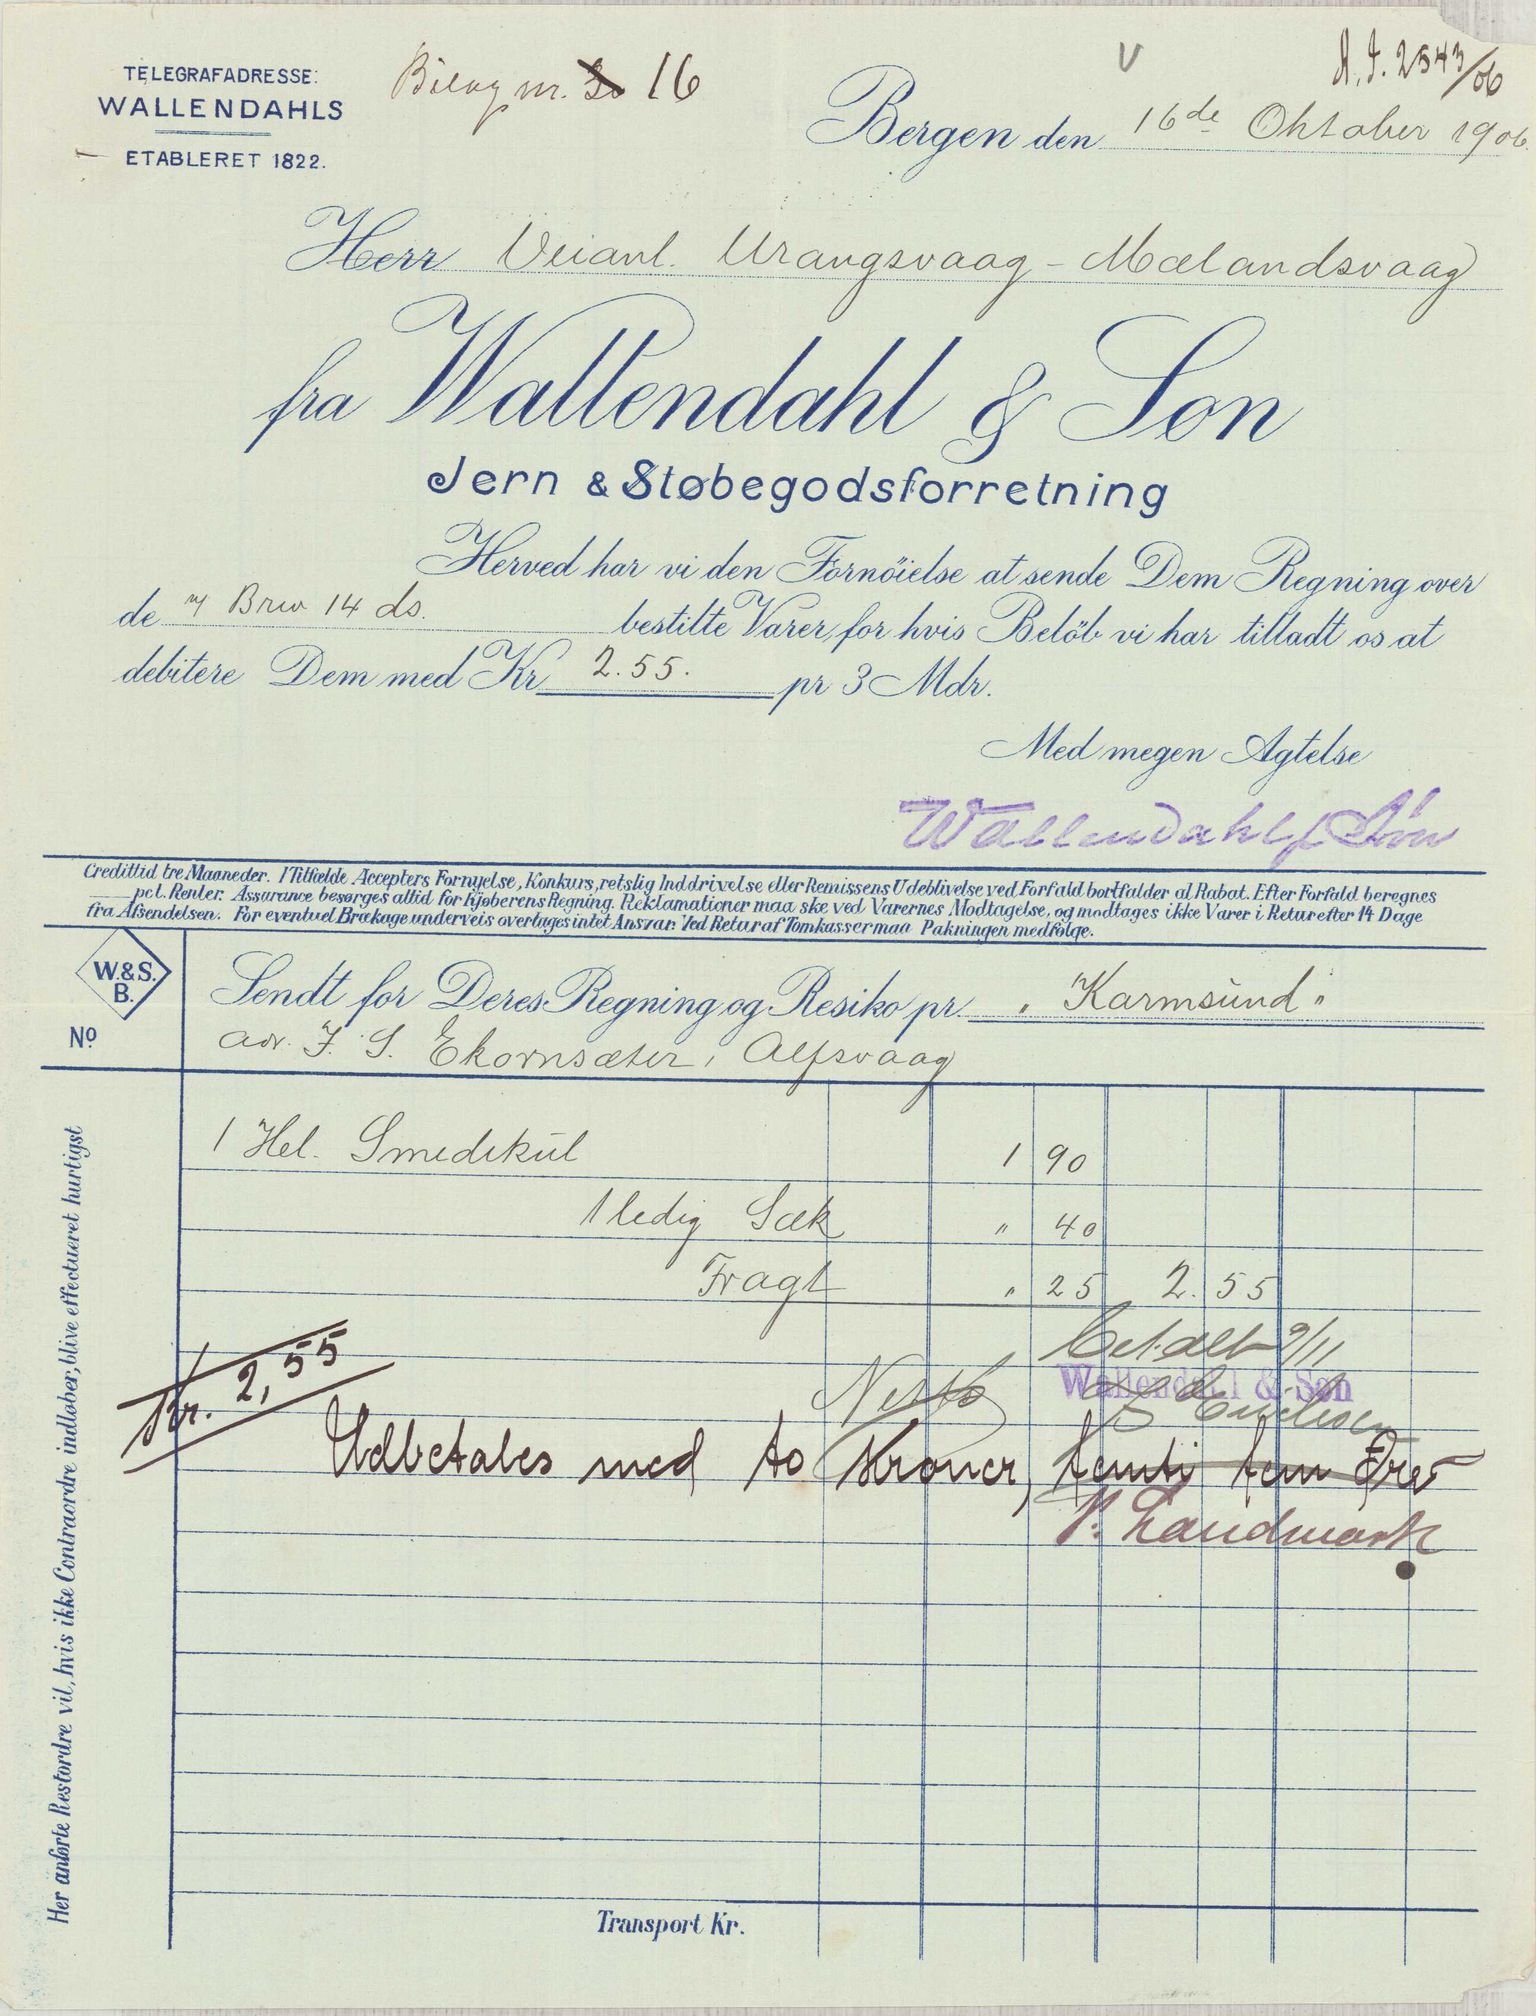 TELEGRAFADRESSE:
WALLENDAHLS
ETABLERET 1822.
Bilag nr. 16
A. J. 2543/06
Bergen den 16de Oktober 1906.
Herr Veianl. Urangsvaag - Mælandsvaag
fra Wallendahl & Søn
Jern & Støbegodsforretning
Herved har vi den Fornöielse at sende Dem Regning over
de Brev 14 ds. bestilte Varer, for hvis Belöb vi har tilladt os at
debitere Dem med Kr 2.55. pr 3 Mdr.
Med megen Agtelse
Wallendahl & Søn
Credittid tre Maaneder. I Tilfælde Accepters Fornyelse, Konkurs, retslig Inddrivelse eller Remissens Udeblivelse ved Forfald bortfalder al Rabat. Efter Forfald beregnes
pct. Renter. Assurance besørges altid for Kjøberens Regning. Reklamationer maa ske ved Varernes Modtagelse, og modtages ikke Varer i Retur efter 14 Dage
fra Afsendelsen. For eventuel Brækage underveis overtages intet Ansvar. Ved Retur af Tomkasser maa Pakningen medfølge.
W. & S.
B.
No
Sendt for Deres Regning og Resiko pr. "Karmsund"
adr. J. S. Ekornsæter, Alfsvaag
1 Hel. Smedekul 1 90
1 ledig Sæk " 40
Fragt " 25 2.55
Betalt 9/11
Netto
Wallendahl & Søn
Kr. 2,55
Udbetales med to Kroner, femti fem Øre
P. Landmark
Her anførte Restordre vil, hvis ikke Contraordre indløber, blive effectueret hurtigst
Transport Kr.